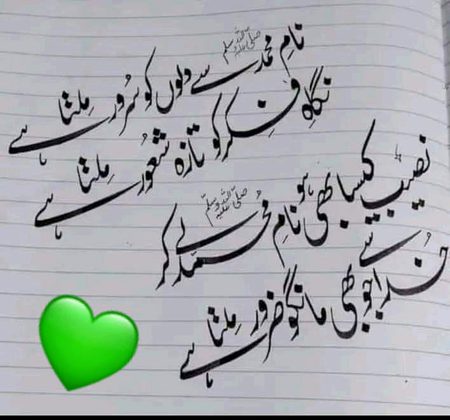 نامِ محمد ﷺ سے دلوں کو سُرور مِلتا ہے
نگاہِ فِکر کو تازہ شعُور مِلتا ہے
نصیب کیسا بھی ہو نامِ مُحمد ﷺ لے کر
خُدا سے جو بھی مانگو ضرور مِلتا ہے